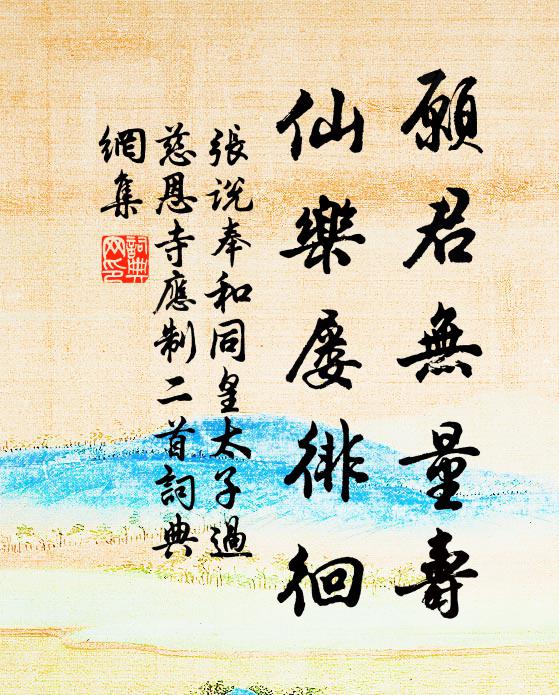 願君無量壽
仙樂屢徘徊
張說奉和同皇太子過
慈恩寺應制二首詞典
網集
詞典網印